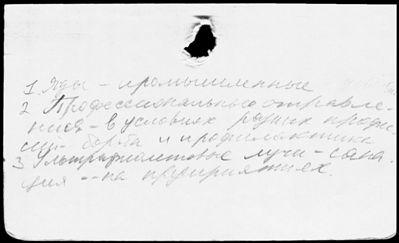 1 Яды - промышленные
2 Профессиональные отравле-
ния - в условиях разных профес-
сий - борьба и профилактика
3 Ультрафиолетовые лучи - сана-
ция -- на предприятиях.